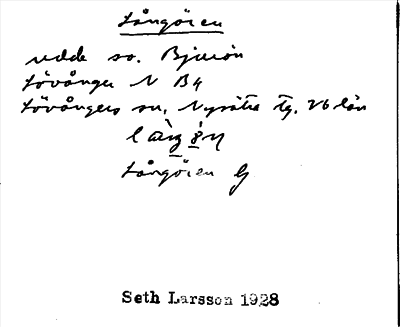 Långören
udde so. Bjurön
Lövånger N B4
Lövångers sn, Nysätra tg, Vb län
Långören G
Seth Larsson 1928